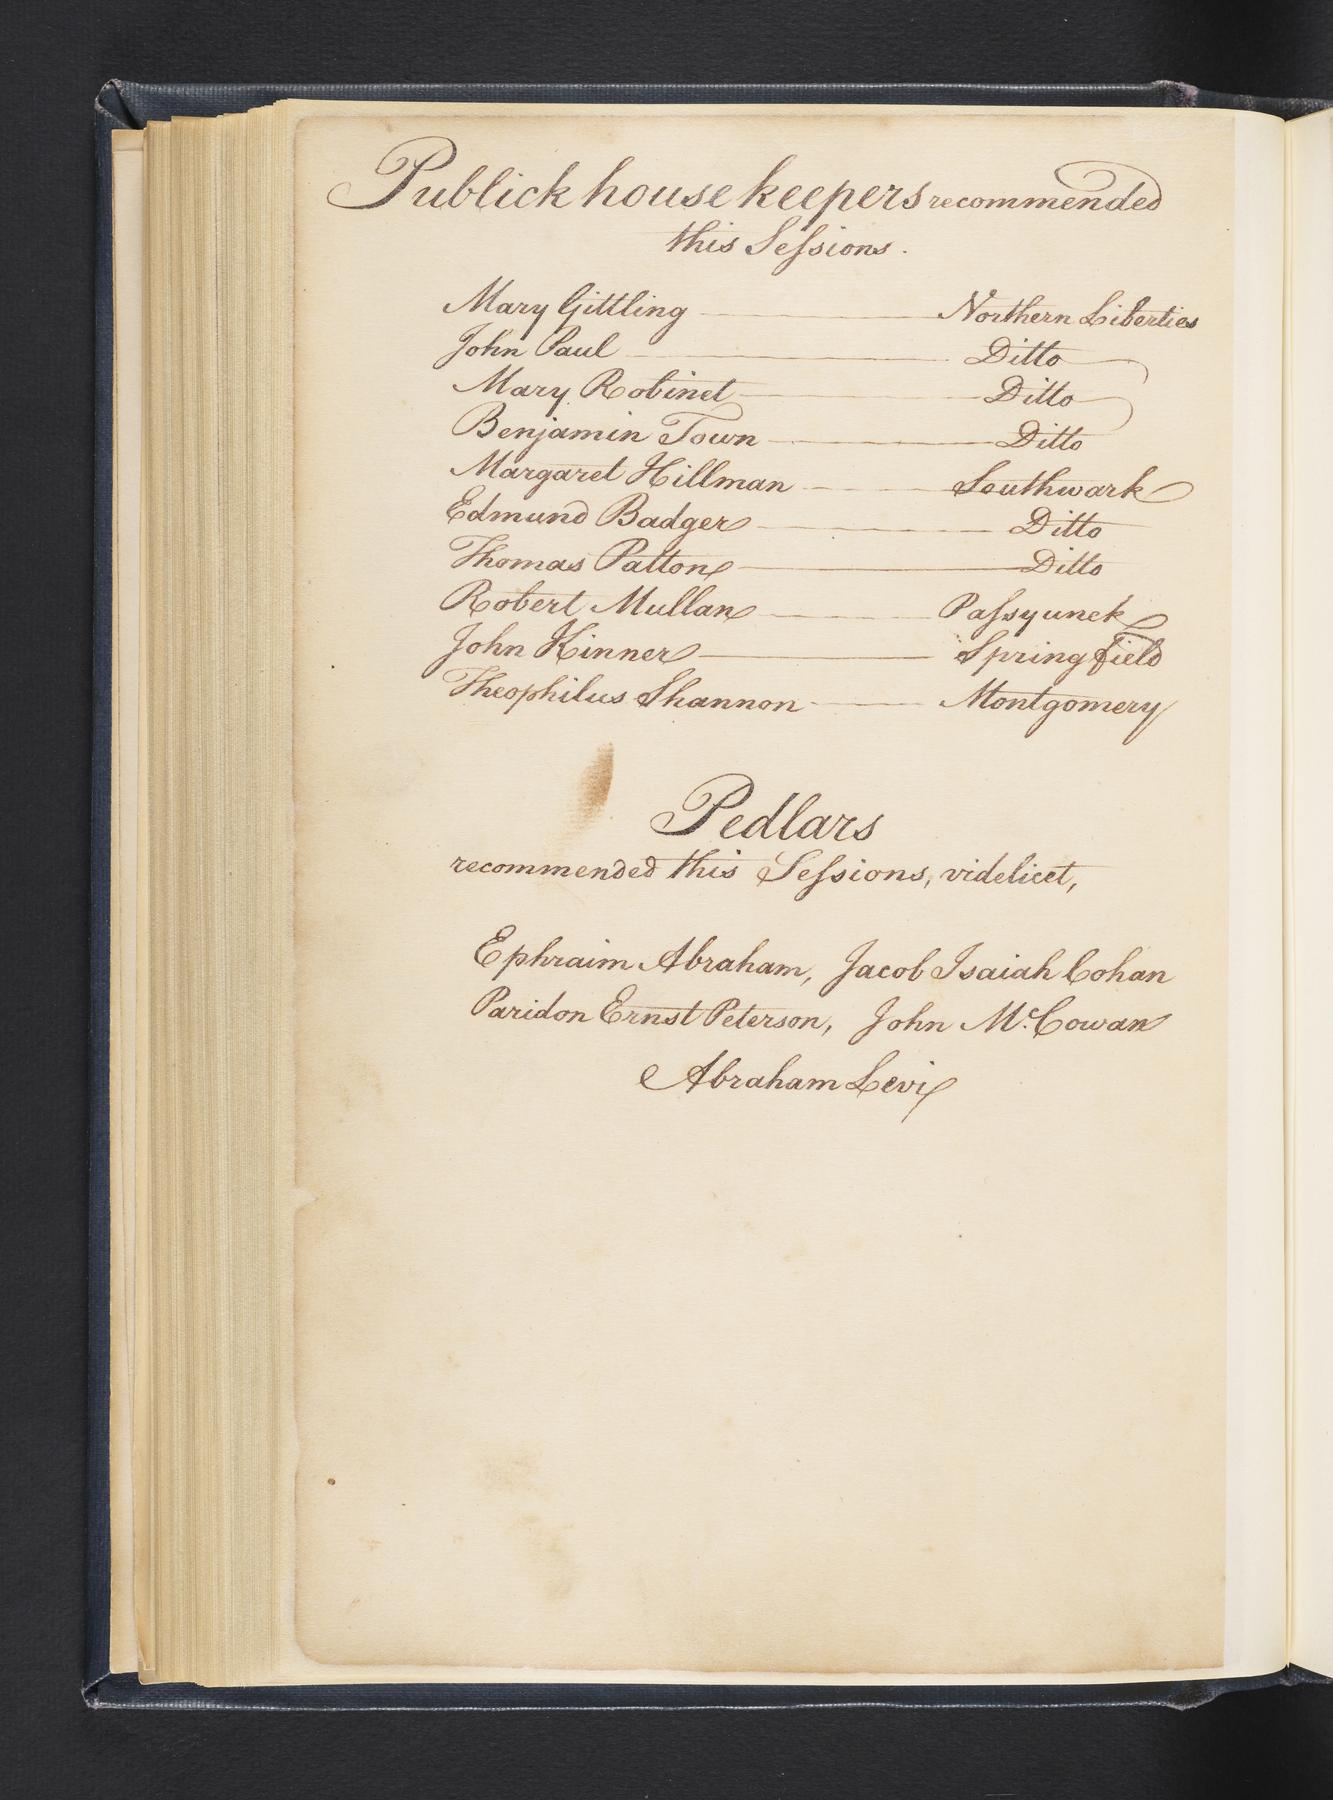 Publick house keepers recommended
this Sessions.
Mary Gittling Northern Liberties
John Paul Ditto
Mary Robinet Ditto
Benjamin Town Ditto
Margaret Hillman Southwark
Edmund Badger Ditto
Thomas Patton Ditto
Robert Mullan Passyunck
John Kinner Springfield
Theophilus Shannon Montgomery
Pedlars
recommended this Sessions, videlicet,
Ephraim Abraham, Jacob Isaiah Cohan
Paridon Ernst Peterson, John Mc. Cowan
Abraham Levi